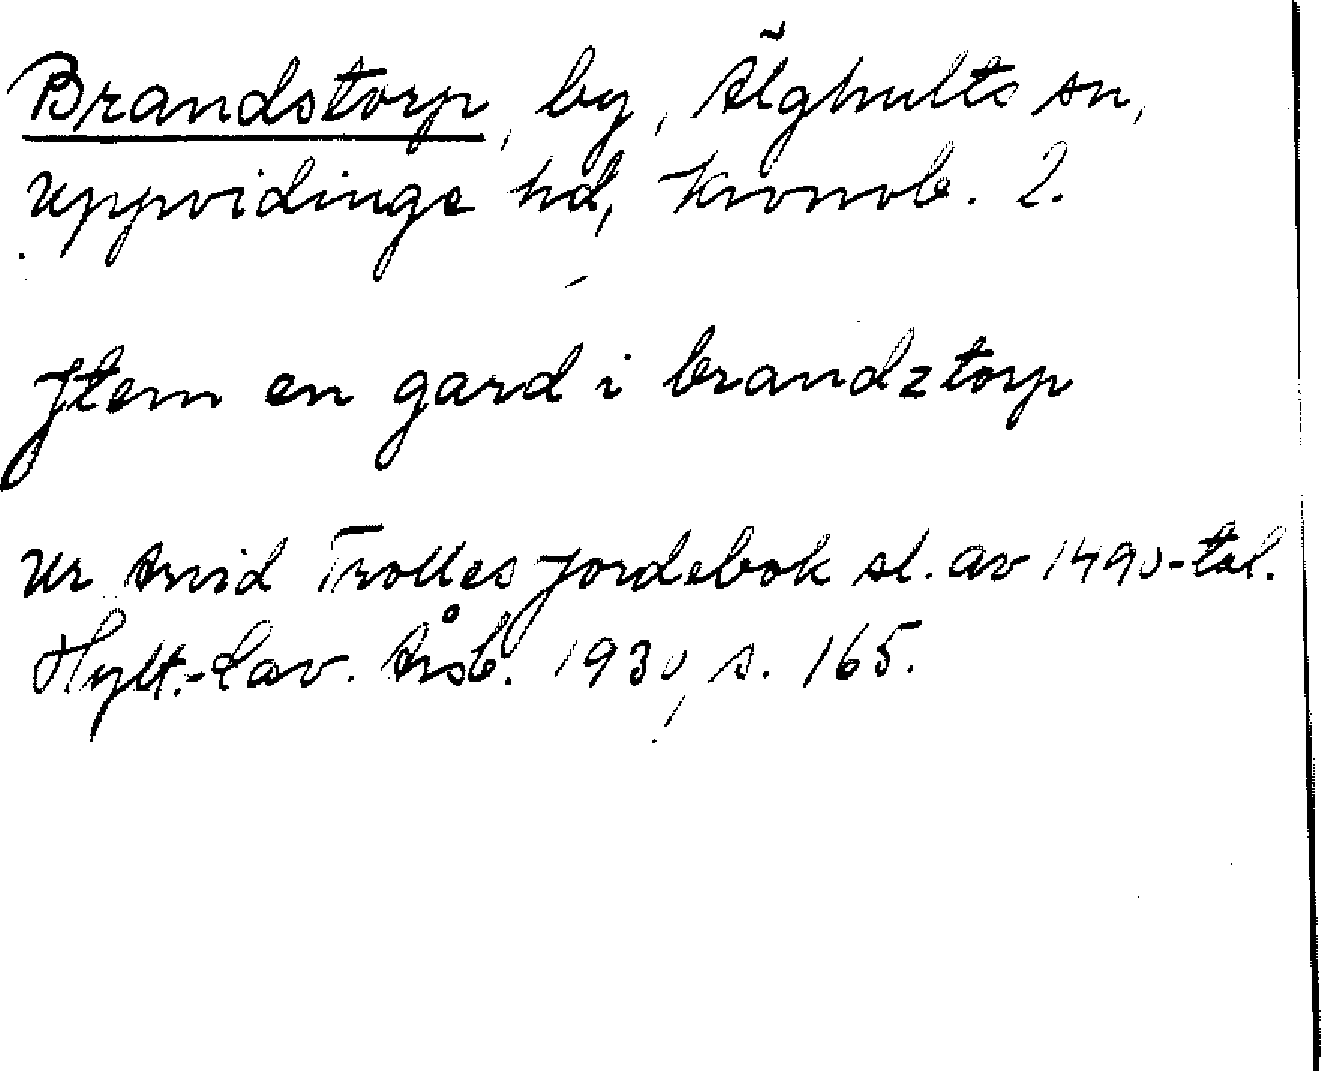 Brandstorp, by, Älghults sn,
Uppvidinge hd, Kronob. l.
Item en gard i brandztorp
Ur Arvid Trolles jordebok sl. av 1490-tal.
Hylt.-Cav. Årsb. 1930, s. 165.